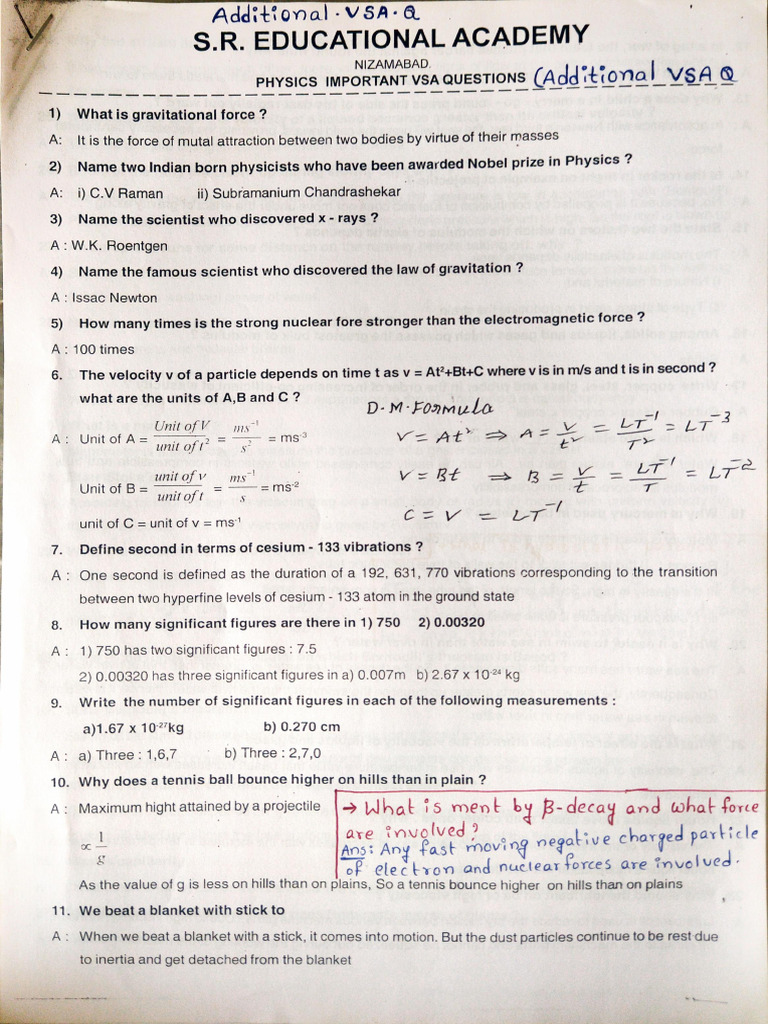 Additional. VSA. Q
S.R. EDUCATIONAL ACADEMY
NIZAMABAD.
PHYSICS IMPORTANT VSA QUESTIONS (Additional VSA Q
1) What is gravitational force ?
A: It is the force of mutal attraction between two bodies by virtue of their masses
2) Name two Indian born physicists who have been awarded Nobel prize in Physics ?
A: i) C.V Raman ii) Subramanium Chandrashekar
3) Name the scientist who discovered x - rays ?
A : W.K. Roentgen
4) Name the famous scientist who discovered the law of gravitation ?
A : Issac Newton
5) How many times is the strong nuclear fore stronger than the electromagnetic force ?
A : 100 times
6. The velocity v of a particle depends on time t as v = At²+Bt+C where v is in m/s and t is in second ?
what are the units of A,B and C ?
D.M.Formula
A : Unit of A = Unit of V / unit of t² = ms⁻¹ / s² = ms⁻³
V = At² ⇒ A = V/t² = LT⁻¹/T² = LT⁻³
Unit of B = unit of v / unit of t = ms⁻¹ / s = ms⁻²
V = Bt ⇒ B = V/t = LT⁻¹/T = LT⁻²
unit of C = unit of v = ms⁻¹
C = V = LT⁻¹
7. Define second in terms of cesium - 133 vibrations ?
A : One second is defined as the duration of a 192, 631, 770 vibrations corresponding to the transition
between two hyperfine levels of cesium - 133 atom in the ground state
8. How many significant figures are there in 1) 750 2) 0.00320
A : 1) 750 has two significant figures : 7.5
2) 0.00320 has three significant figures in a) 0.007m b) 2.67 x 10⁻²⁴ kg
9. Write the number of significant figures in each of the following measurements :
a)1.67 x 10⁻²⁷kg b) 0.270 cm
A : a) Three : 1,6,7 b) Three : 2,7,0
10. Why does a tennis ball bounce higher on hills than in plain ?
A : Maximum hight attained by a projectile
∝ 1/g
→ What is ment by β-decay and what force
are involved?
Ans: Any fast moving negative charged particle
of electron and nuclear forces are involved.
As the value of g is less on hills than on plains, So a tennis bounce higher on hills than on plains
11. We beat a blanket with stick to
A : When we beat a blanket with a stick, it comes into motion. But the dust particles continue to be rest due
to inertia and get detached from the blanket